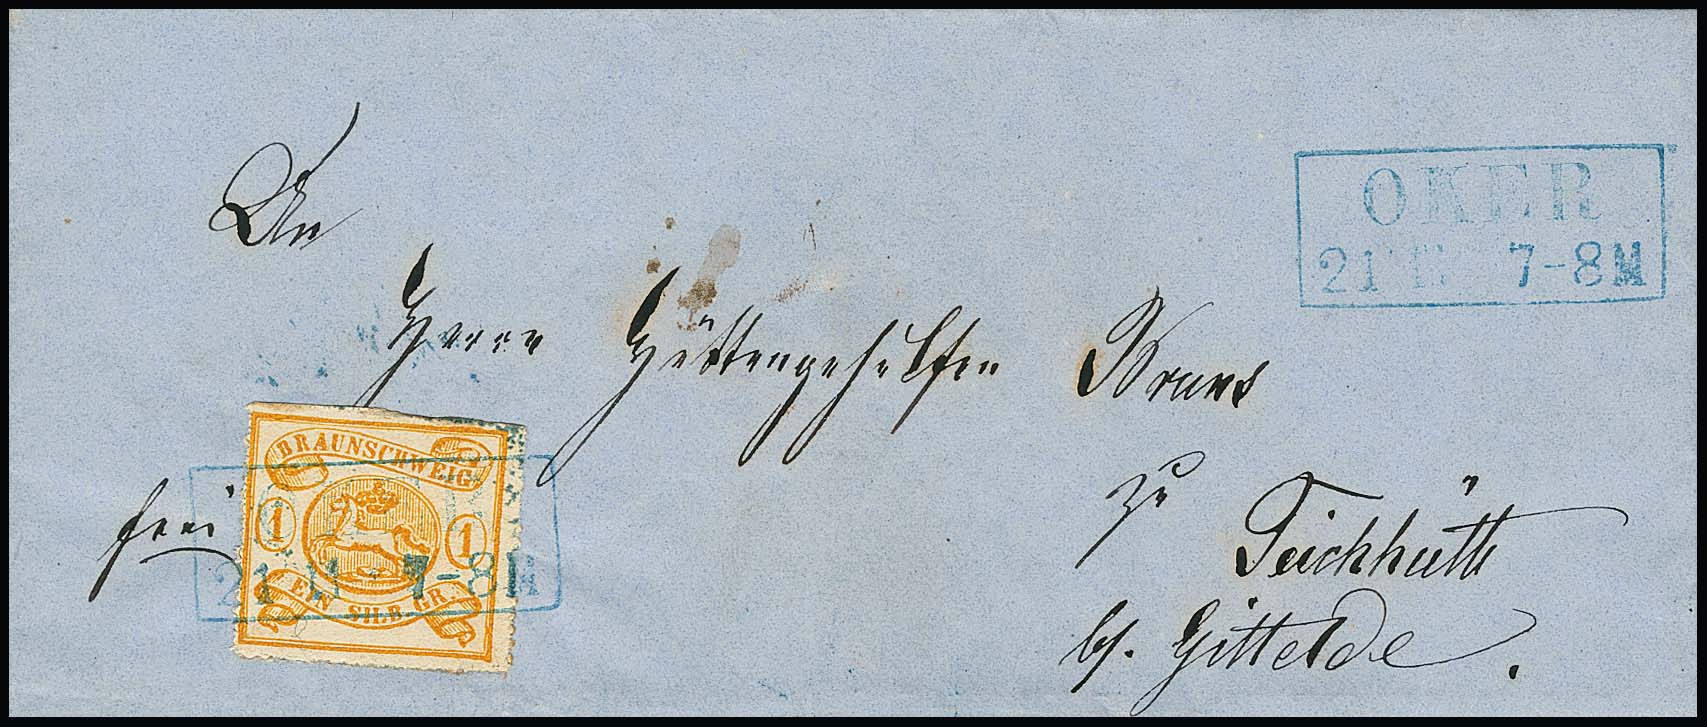 An
Herrn Hüttengehülfen Bruns
zu
Teichhütte
bf. Gittelde.
frei
OKER
21 7-8 M
BRAUNSCHWEIG
1 1
EIN SILB. GR.
21 7-8 M